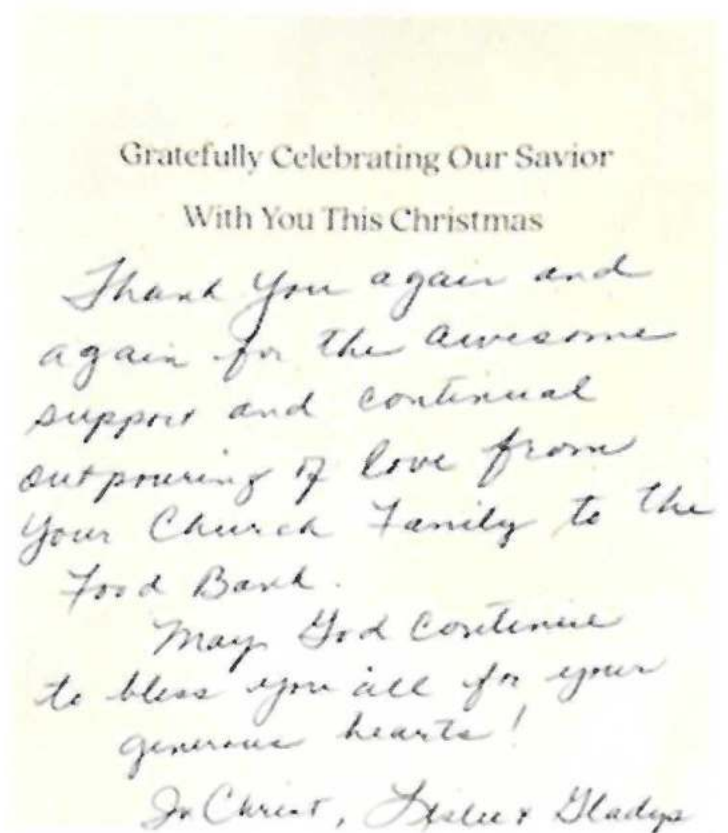 Gratefully Celebrating Our Savior
With You This Christmas
Thank You again and
again for the awesome
support and continual
outpouring of love from
Your Church Family to the
Food Bank.
May God continue
to bless you all for your
generous hearts!
In Christ, Leslie & Gladys